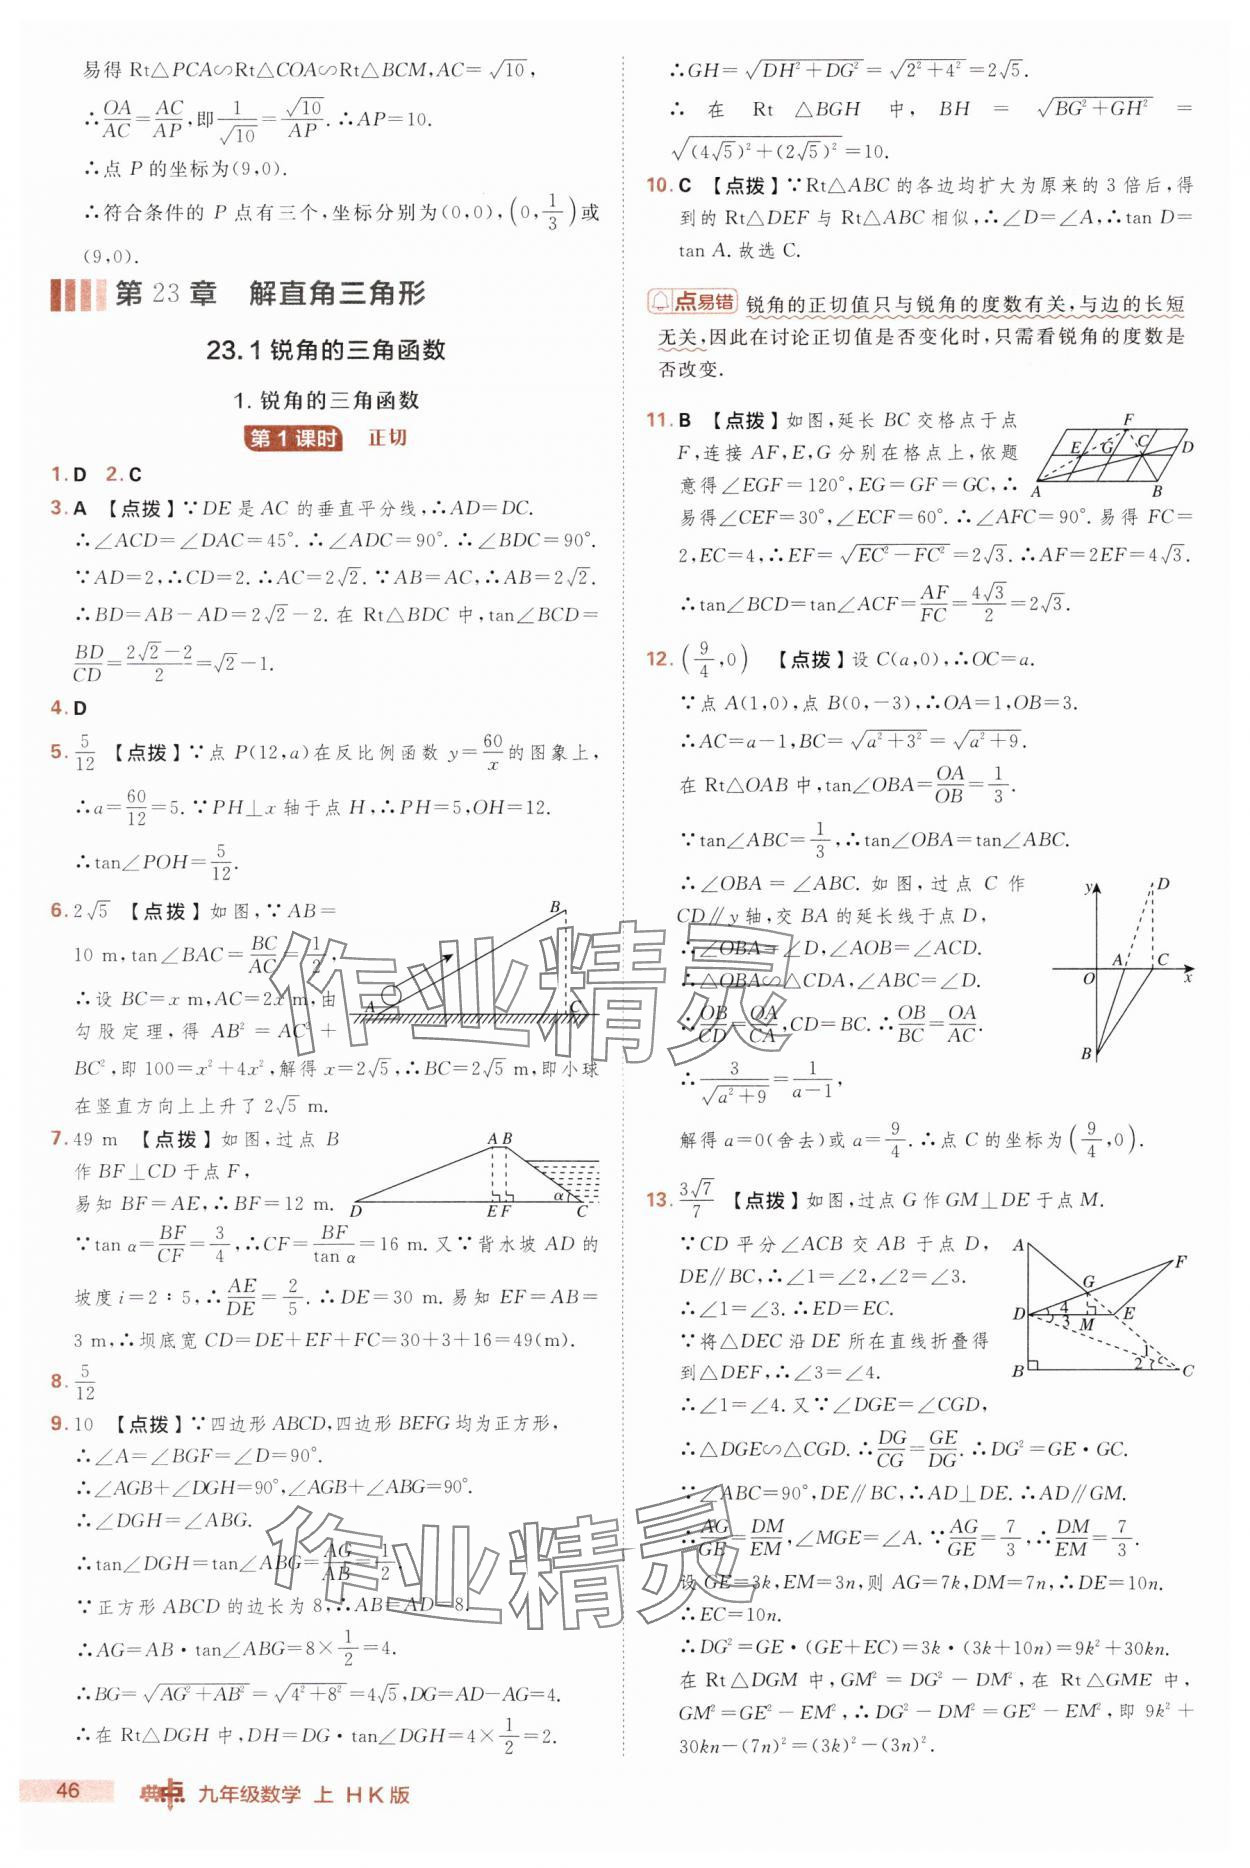 易得 Rt△PCA∽Rt△COA∽Rt△BCM,AC=√10,
∴OA/AC=AC/AP,即1/√10=√10/AP.∴AP=10.
∴点 P 的坐标为(9,0).
∴符合条件的 P 点有三个,坐标分别为(0,0),(0,1/3)或
(9,0).
第 23 章 解直角三角形
23.1 锐角的三角函数
1. 锐角的三角函数
第 1 课时 正切
1. D 2. C
3. A 【点拨】∵DE 是 AC 的垂直平分线,∴AD=DC.
∴∠ACD=∠DAC=45°.∴∠ADC=90°.∴∠BDC=90°.
∵AD=2,∴CD=2.∴AC=2√2.∵AB=AC,∴AB=2√2.
∴BD=AB-AD=2√2-2.在 Rt△BDC 中,tan∠BCD=
BD/CD=(2√2-2)/2=√2-1.
4. D
5. 5/12 【点拨】∵点 P(12,a)在反比例函数 y=60/x的图象上,
∴a=60/12=5.∵PH⊥x 轴于点 H,∴PH=5,OH=12.
∴tan∠POH=5/12.
6. 2√5 【点拨】如图,∵AB=
10 m,tan∠BAC=BC/AC=1/2,
∴设 BC=x m,AC=2x m,由
勾股定理,得 AB²=AC²+
BC²,即 100=x²+4x²,解得 x=2√5,∴BC=2√5 m,即小球
在竖直方向上上升了 2√5 m.
B
A
C
7. 49 m 【点拨】如图,过点 B
作 BF⊥CD 于点 F,
易知 BF=AE,∴BF=12 m.
∵tan α=BF/CF=3/4,∴CF=BF/tan α=16 m.又∵背水坡 AD 的
坡度 i=2∶5,∴AE/DE=2/5.∴DE=30 m.易知 EF=AB=
3 m,∴坝底宽 CD=DE+EF+FC=30+3+16=49(m).
A B
α
D E F C
8. 5/12
9. 10 【点拨】∵四边形 ABCD,四边形 BEFG 均为正方形,
∴∠A=∠BGF=∠D=90°.
∴∠AGB+∠DGH=90°,∠AGB+∠ABG=90°.
∴∠DGH=∠ABG.
∴tan∠DGH=tan∠ABG=AG/AB=1/2.
∵正方形 ABCD 的边长为 8,∴AB=AD=8.
∴AG=AB·tan∠ABG=8×1/2=4.
∴BG=√(AG²+AB²)=√(4²+8²)=4√5,DG=AD-AG=4.
∴在 Rt△DGH 中,DH=DG·tan∠DGH=4×1/2=2.
46 典中点 九年级数学 上 HK版
∴GH=√(DH²+DG²)=√(2²+4²)=2√5.
∴ 在 Rt △BGH 中, BH = √(BG²+GH²) =
√((4√5)²+(2√5)²)=10.
10. C 【点拨】∵Rt△ABC 的各边均扩大为原来的 3 倍后,得
到的 Rt△DEF 与 Rt△ABC 相似,∴∠D=∠A,∴tan D=
tan A.故选 C.
点易错 锐角的正切值只与锐角的度数有关,与边的长短
无关,因此在讨论正切值是否变化时,只需看锐角的度数是
否改变.
11. B 【点拨】如图,延长 BC 交格点于点
F,连接 AF,E,G 分别在格点上,依题
意得∠EGF=120°,EG=GF=GC,∴
易得∠CEF=30°,∠ECF=60°.∴∠AFC=90°.易得 FC=
2,EC=4,∴EF=√(EC²-FC²)=2√3.∴AF=2EF=4√3.
∴tan∠BCD=tan∠ACF=AF/FC=4√3/2=2√3.
F
E G C D
A B
12. (9/4,0) 【点拨】设 C(a,0),∴OC=a.
∵点 A(1,0),点 B(0,-3),∴OA=1,OB=3.
∴AC=a-1,BC=√(a²+3²)=√(a²+9).
在 Rt△OAB 中,tan∠OBA=OA/OB=1/3.
∵tan∠ABC=1/3,∴tan∠OBA=tan∠ABC.
∴∠OBA=∠ABC.如图,过点 C 作
CD∥y 轴,交 BA 的延长线于点 D,
∴∠OBA=∠D,∠AOB=∠ACD.
∴△OBA∽△CDA,∠ABC=∠D.
∴OB/CD=OA/CA,CD=BC.∴OB/BC=OA/AC.
∴3/√(a²+9)=1/(a-1),
解得 a=0(舍去)或 a=9/4.∴点 C 的坐标为(9/4,0).
y D
O A C x
B
13. 3√7/7 【点拨】如图,过点 G 作 GM⊥DE 于点 M.
∵CD 平分∠ACB 交 AB 于点 D,
DE∥BC,∴∠1=∠2,∠2=∠3.
∴∠1=∠3.∴ED=EC.
∵将△DEC 沿 DE 所在直线折叠得
到△DEF,∴∠3=∠4.
∴∠1=∠4.又∵∠DGE=∠CGD,
∴△DGE∽△CGD.∴DG/CG=GE/DG.∴DG²=GE·GC.
∵∠ABC=90°,DE∥BC,∴AD⊥DE.∴AD∥GM.
∴AG/GE=DM/EM,∠MGE=∠A.∵AG/GE=7/3,∴DM/EM=7/3.
设 GE=3k,EM=3n,则 AG=7k,DM=7n,∴DE=10n.
∴EC=10n.
∴DG²=GE·(GE+EC)=3k·(3k+10n)=9k²+30kn.
在 Rt△DGM 中,GM²=DG²-DM²,在 Rt△GME 中,
GM²=GE²-EM²,∴DG²-DM²=GE²-EM²,即 9k²+
30kn-(7n)²=(3k)²-(3n)².
A
F
G
D 4 3 M E
1
2
B C
作业精灵
作业精灵